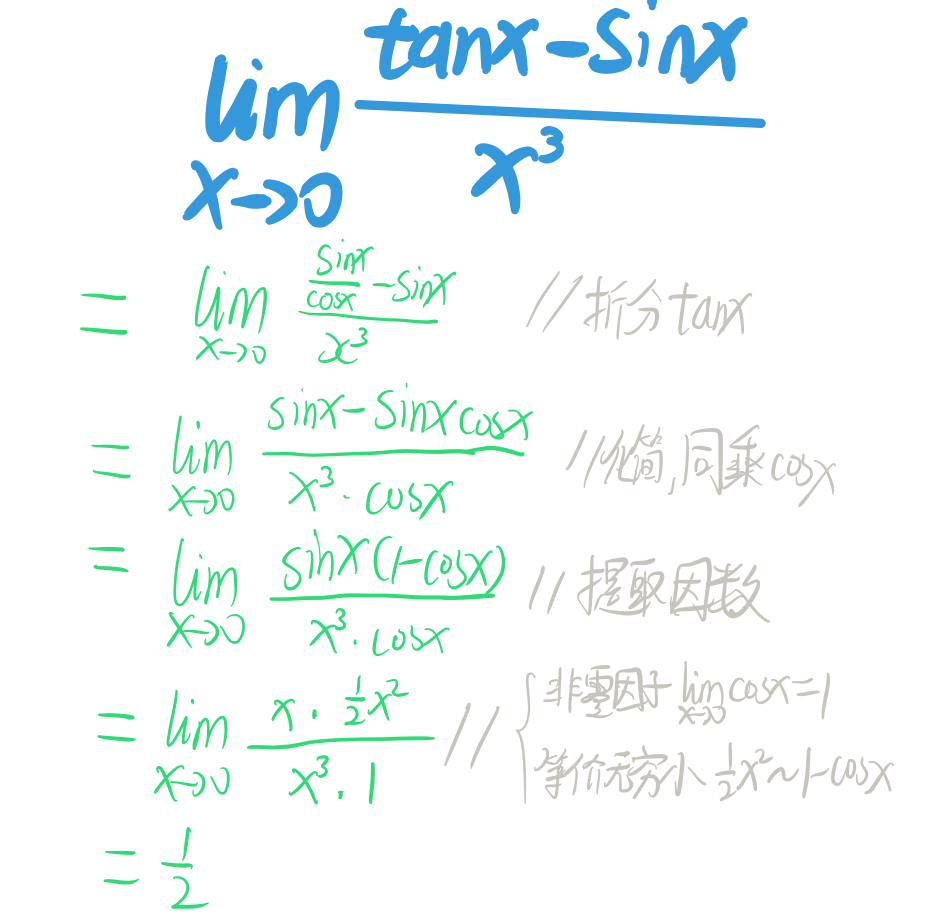 lim x→0 (tanx-sinx)/x³
= lim x→0 (sinx/cosx - sinx)/x³ //折分tanx
= lim x→0 (sinx-sinxcosx)/(x³·cosx) //化简,同乘cosx
= lim x→0 sinx(1-cosx)/(x³·cosx) //提取因数
= lim x→0 (x·½x²)/(x³·1) // { 非零因子 lim x→0 cosx=1
等价无穷小 ½x²~1-cosx
= 1/2